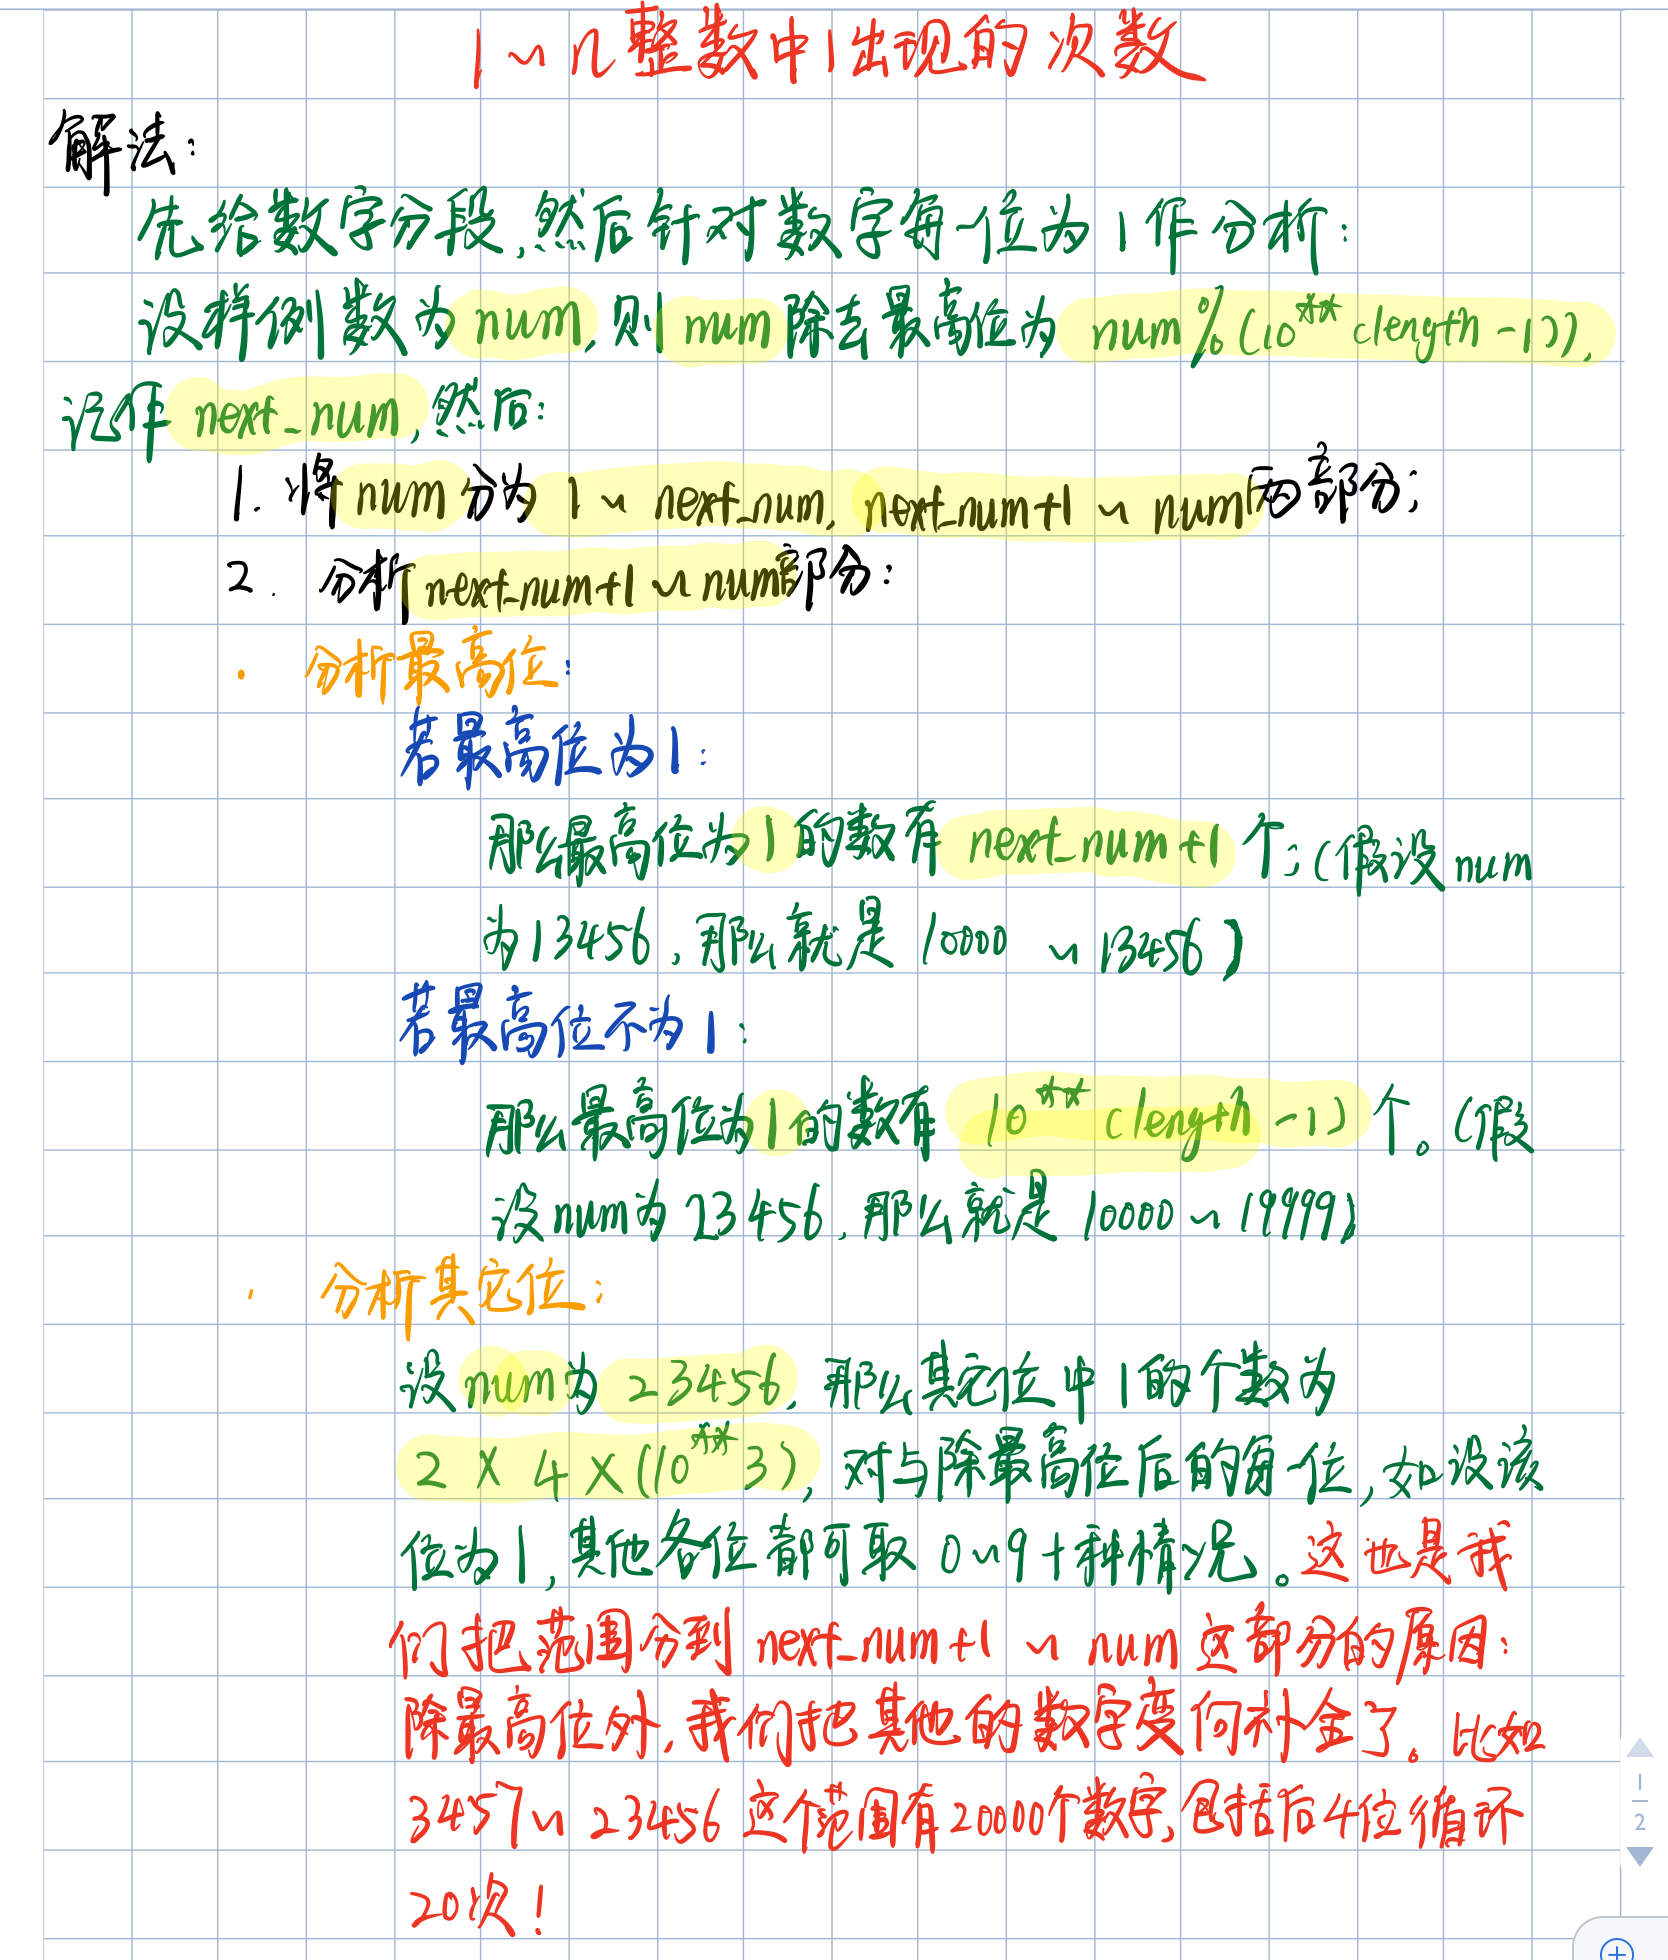 1~n整数中1出现的次数
解法:
先给数字分段,然后针对数字每一位为1作分析:
设样例数为num,则num除去最高位为num%(10**(length-1)),
记作next_num,然后:
1. 将num分为1~next_num, next_num+1~num两部分;
2. 分析next_num+1~num部分:
· 分析最高位:
若最高位为1:
那么最高位为1的数有next_num+1个;(假设num
为13456,那么就是10000~13456)
若最高位不为1:
那么最高位为1的数有10**(length-1)个。(假
设num为23456,那么就是10000~19999)
· 分析其它位:
设num为23456,那么其它位中1的个数为
2×4×(10**3),对与除最高位后的每一位,如设该
位为1,其他各位都可取0~9十种情况。这也是我
们把范围分到next_num+1~num这部分的原因:
除最高位外,我们把其他的数字变向补全了。比如
3457~23456这个范围有20000个数字,包括后4位循环
20次!
1
2